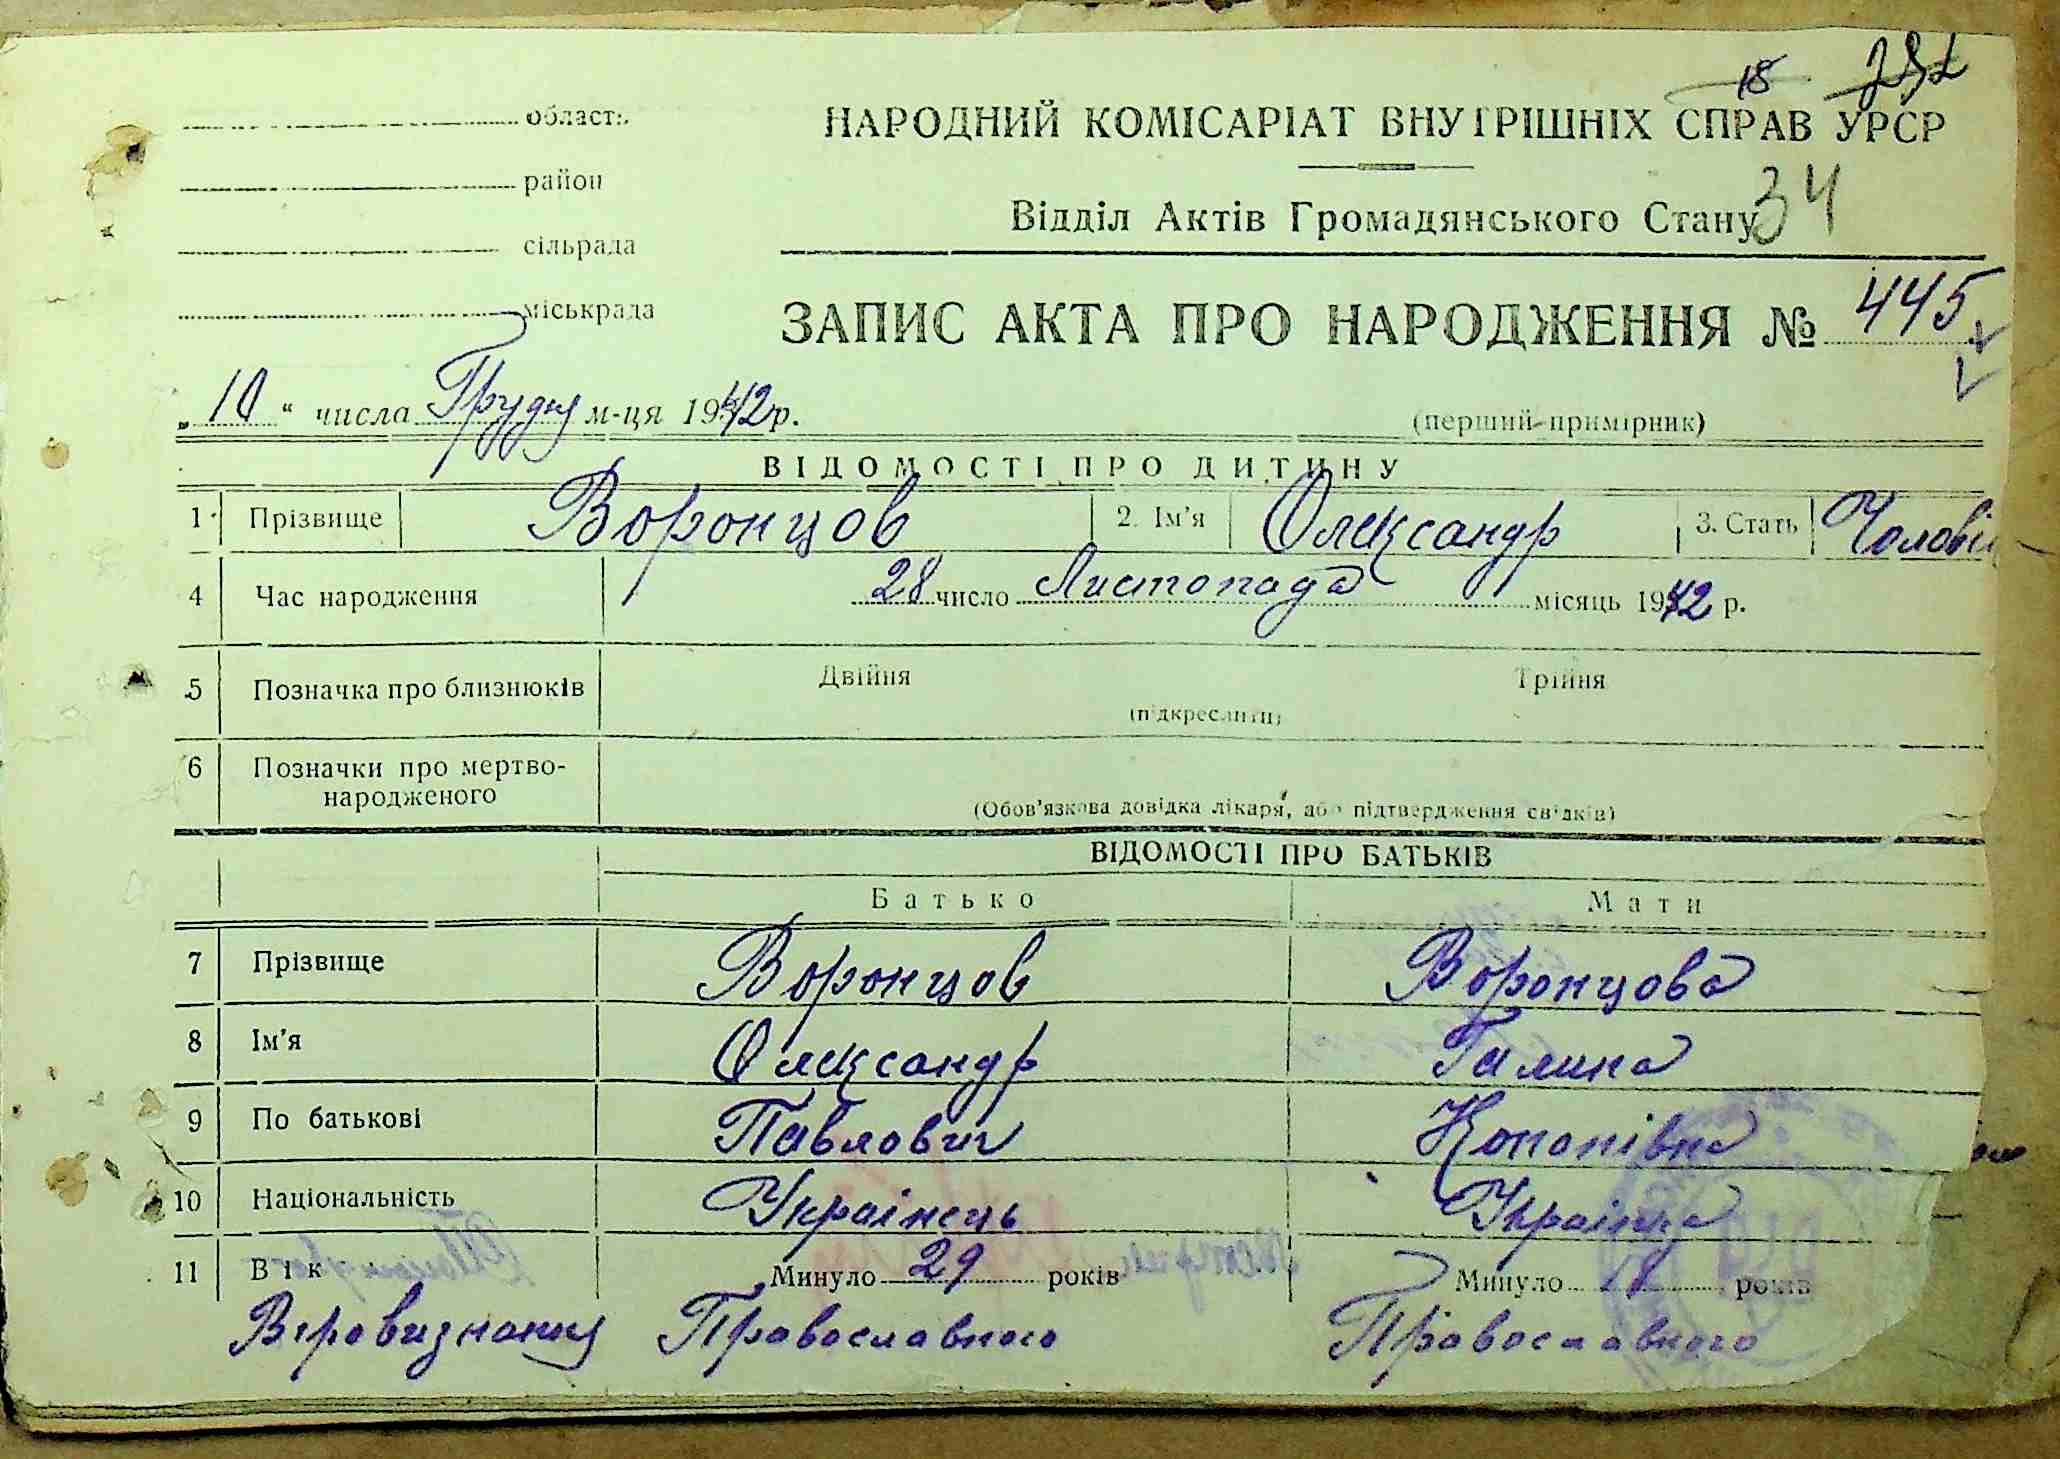 18 232
область
НАРОДНИЙ КОМІСАРІАТ ВНУТРІШНІХ СПРАВ УРСР
район
Відділ Актів Громадянського Стану 34
сільрада
міськрада
ЗАПИС АКТА ПРО НАРОДЖЕННЯ № 445
„10“ числа Грудня м-ця 1942 р.
(перший примірник)
ВІДОМОСТІ ПРО ДИТИНУ
1 Прізвище Воронцов 2. Ім'я Олександр 3. Стать Чолові
4 Час народження 28 число Листопада місяць 1942 р.
5 Позначка про близнюків Двійня Трійня
(підкреслити)
6 Позначки про мертво-
народженого
(Обов'язкова довідка лікаря, або підтвердження свідків)
ВІДОМОСТІ ПРО БАТЬКІВ
Батько Мати
7 Прізвище Воронцов Воронцова
8 Ім'я Олександр Галина
9 По батькові Павлович Кононівна
10 Національність Українець Українка
11 Вік Минуло 29 років Минуло 18 років
Віровизнання Православного Православного